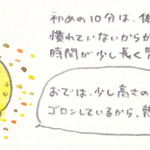 初めの10分は、体
慣れていないからか
時間が少し長く
おでは、少し高さの
ゴロンしているから、熱